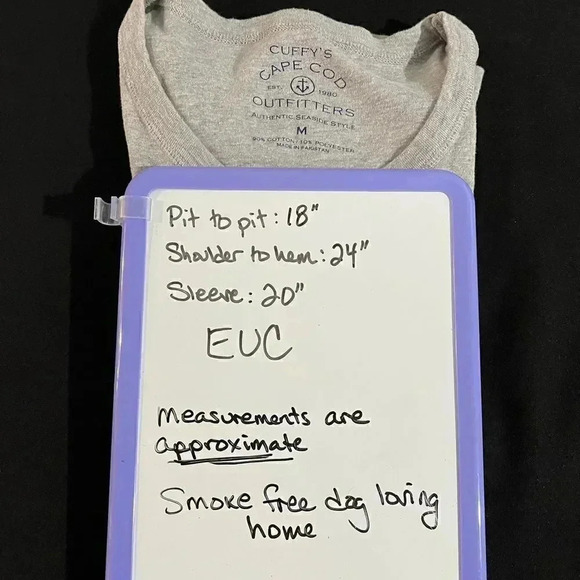 CUFFY'S
CAPE COD
EST. 1980
OUTFITTERS
AUTHENTIC SEASIDE STYLE
M
90% COTTON/10% POLYESTER
MADE IN PAKISTAN
Pit to pit: 18"
Shoulder to hem: 24"
Sleeve: 20"
EUC
Measurements are
approximate
Smoke free dog loving
home